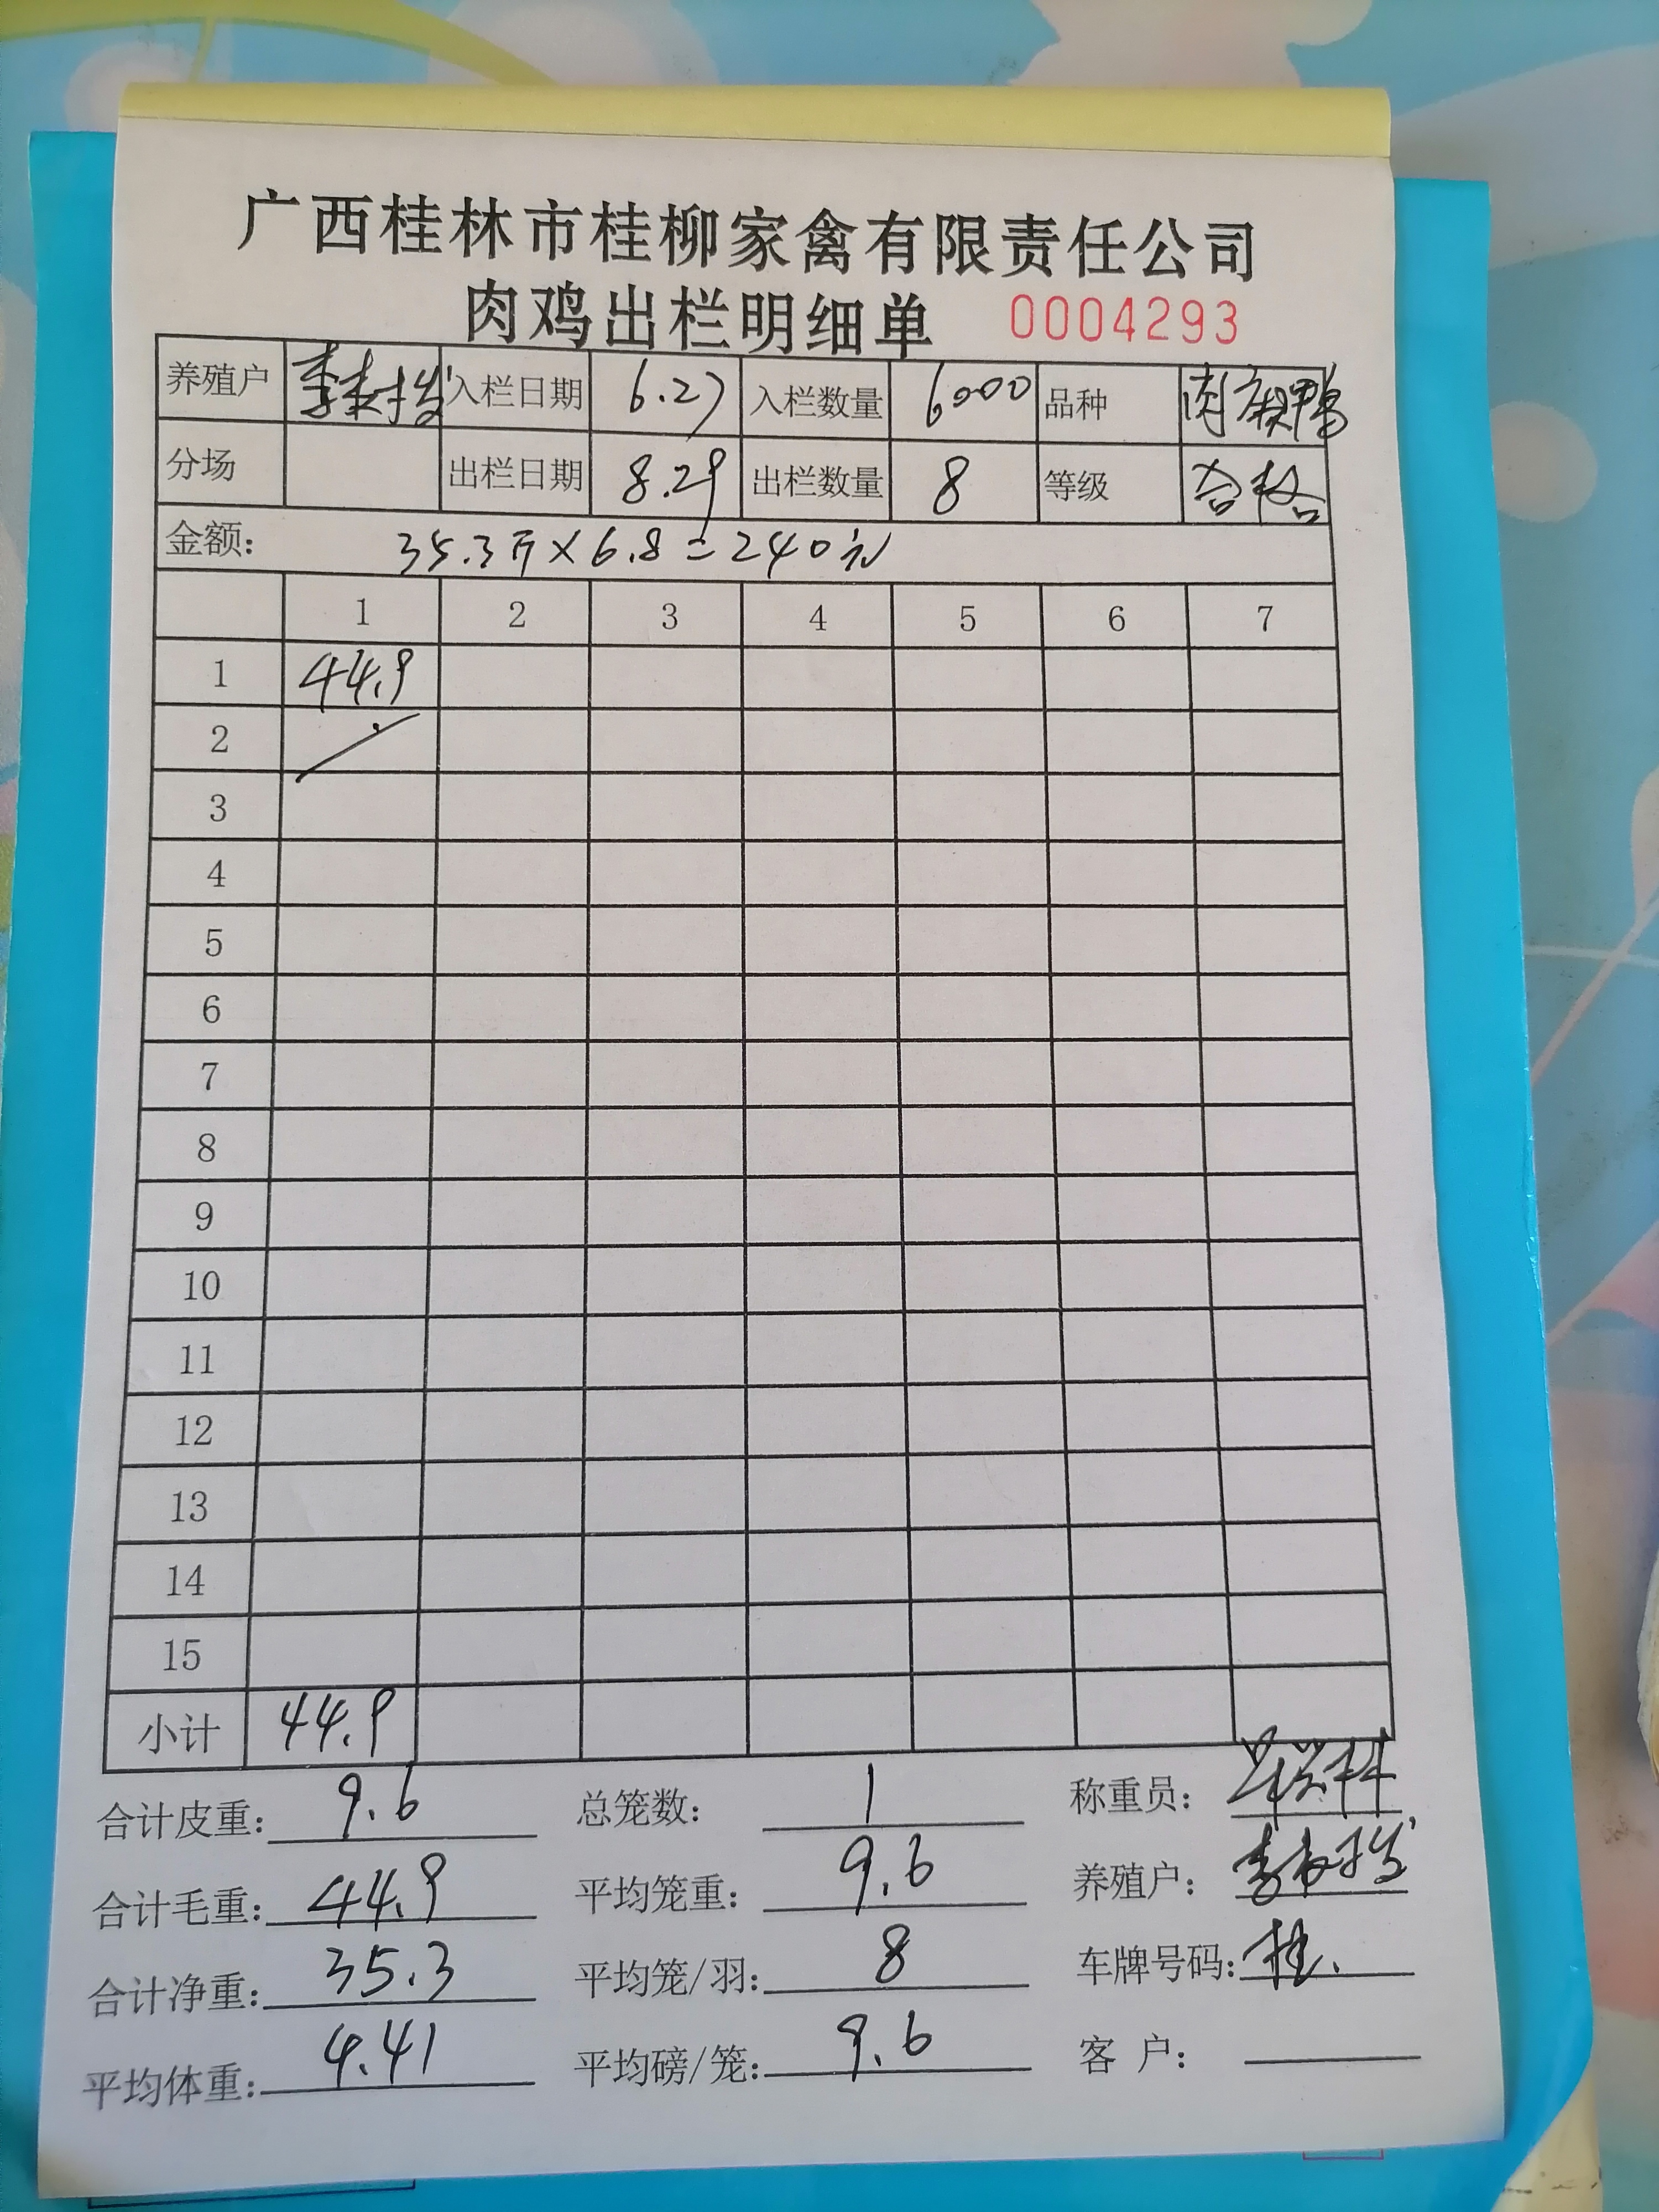 广西桂林市桂柳家禽有限责任公司
肉鸡出栏明细单 0004293
养殖户 入栏日期 6.27 入栏数量 6000 品种 肉麻鸭
分场 出栏日期 8.29 出栏数量 8 等级 合格
金额： 35.3斤×6.8=240元
1 2 3 4 5 6 7
1 44.9
2
3
4
5
6
7
8
9
10
11
12
13
14
15
小计 44.9
合计皮重： 9.6 总笼数： 1 称重员：
合计毛重： 44.9 平均笼重： 9.6 养殖户：
合计净重： 35.3 平均笼/羽： 8 车牌号码： 桂.
平均体重： 4.41 平均磅/笼： 9.6 客 户：